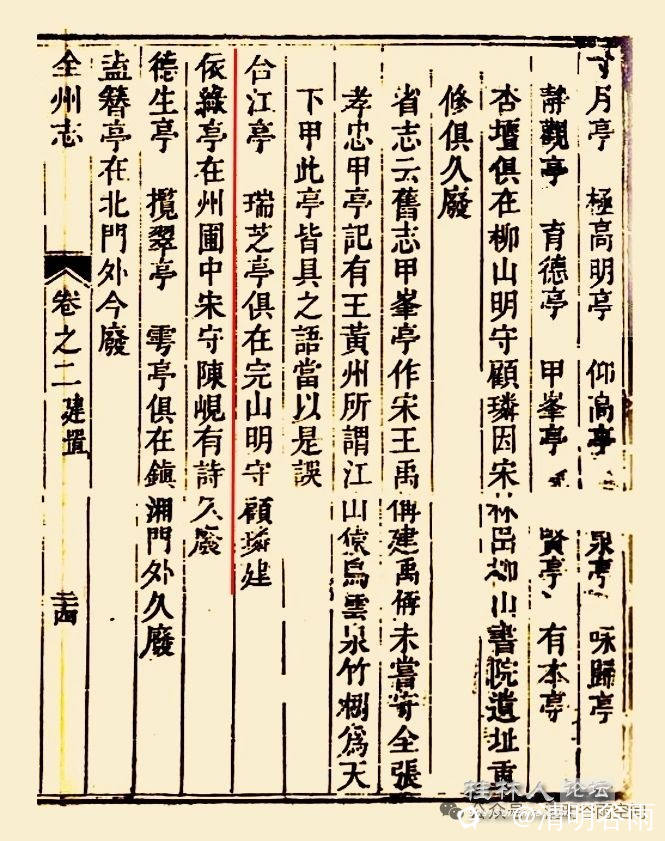 月亭　極高明亭　仰高亭　泉亭　咏歸亭
靜觀亭　育德亭　甲峯亭　賢亭　有本亭
杏壇俱在柳山明守顧璘因宋林岊柳山書院遺址重
修俱久廢
省志云舊志甲峯亭作宋王禹偁建禹偁未嘗守全張
孝忠甲亭記有王黃州所謂江山猿鳥雲泉竹樹爲天
下甲此亭皆具之語當以是誤
合江亭　瑞芝亭俱在完山明守顧璘建
依綠亭在州圃中宋守陳峴有詩久廢
德生亭　攬翠亭　雩亭俱在鎮湘門外久廢
盍簪亭在北門外今廢
全州志　卷之二　建置
桂林人论坛
公众号
@清明谷雨